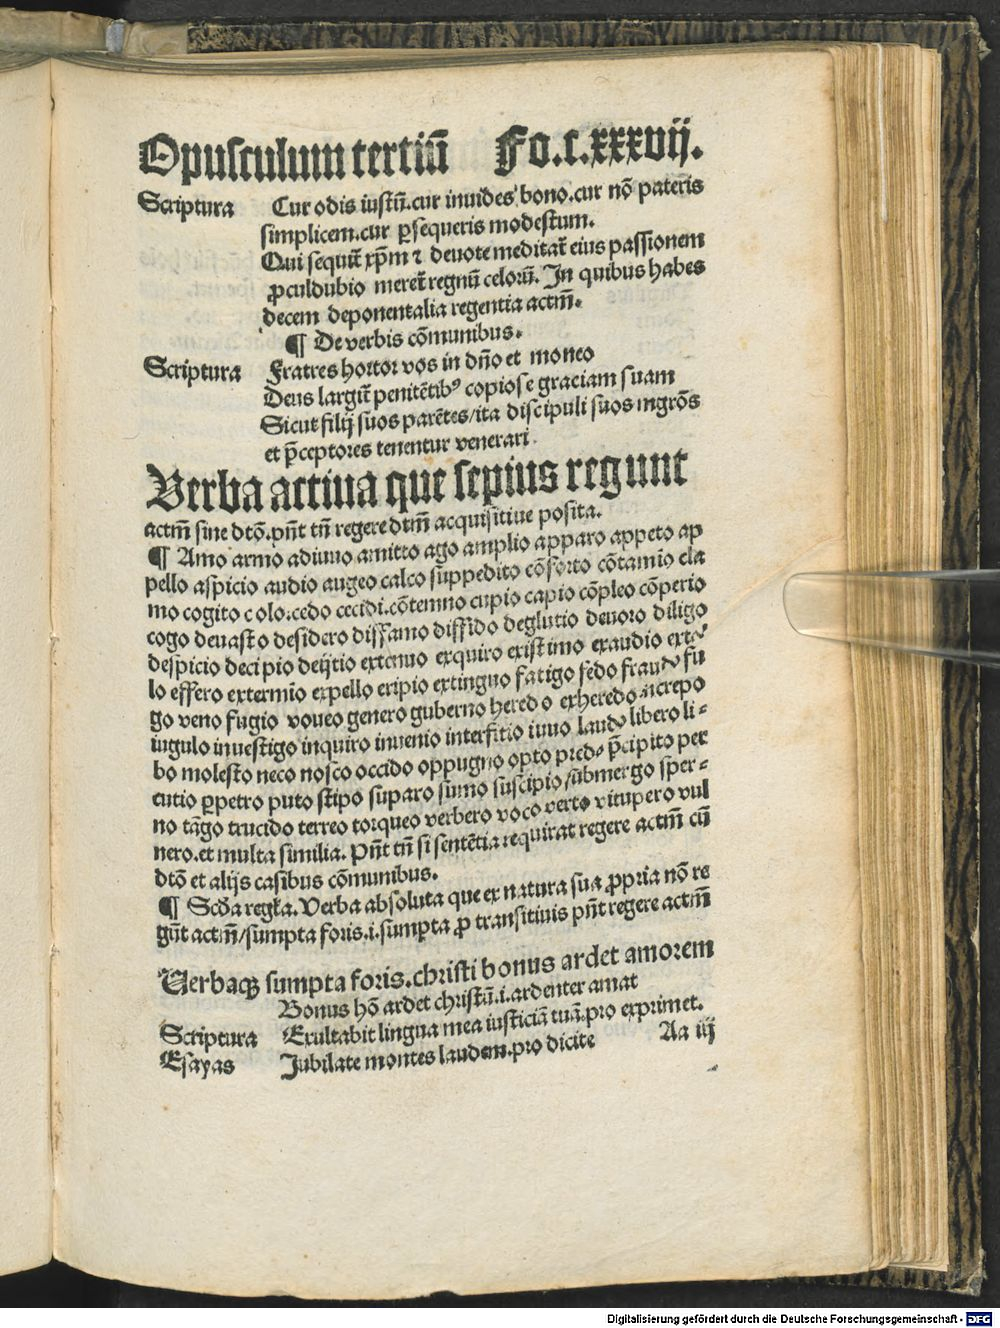 Opusculum tertiū Fo.C.xxxvij.
Scriptura Cur odis iustū.cur inuides bono.cur nō pateris
simplicem.cur ꝑsequeris modestum.
Qui sequūt xp̄m ⁊ deuote meditāt eius passionem
ꝓculdubio merēt regnū celorū. In quibus habes
decem deponentalia regentia actm̄.
¶ De verbis cōmunibus.
Scriptura Fratres hortor vos in dn̄o et moneo
Deus largiť penitētibꝰ copiose graciam suam
Sicut filij suos parētes/ita discipuli suos mgrōs
et p̄ceptores tenentur venerari.
Verba actiua que sepius regunt
actm̄ sine dtō.pn̄t tn̄ regere dtm̄ acquisitiue posita.
¶ Amo armo adiuuo amitto ago amplio apparo appeto ap
pello aspicio audio augeo calco suppedito cōforto cōtamīo cla
mo cogito colo.cedo cecidi.cōtemno cupio capio cōpleo cōperio
cogo deuasto desidero diffamo diffido deglutio deuoro diligo
despicio decipio deijtio extenuo exquiro existimo exaudio exto
lo effero extermio expello eripio extinguo fatigo fedo fraudo fu
go veno fugio voueo genero guberno heredo exheredo increpo
iugulo inuestigo inquiro inuenio interfitio iuuo laudo libero li-
bo molesto neco nosco occido oppugno opto predo p̄cipito per
cutio ꝑpetro puto stipo suparo sumo suscipio/submergo sper-
no tāgo trucido terreo torqueo verbero voco verto vitupero vul
nero.et multa similia. Pn̄t tn̄ si sentētia requirat regere actm̄ cū
dtō et alijs casibus cōmunibus.
¶ Scd̄a regl̄a. Verba absoluta que ex natura sua ꝓpria nō re
gūt actm̄/sumpta foris.i.sumpta ꝓ transitiuis pn̄t regere actm̄
Verbaqꝫ sumpta foris.christi bonus ardet amorem
Bonus hō ardet christū.i.ardenter amat
Scriptura Exultabit lingua mea iusticiā tuā.pro exprimet.
Esayas Jubilate montes laudem.pro dicite Aa iij
Digitalisierung gefördert durch die Deutsche Forschungsgemeinschaft - DFG